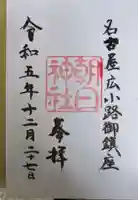 名古屋広小路御鎮座
朝日神社
奉拝
令和五年十二月二十七日